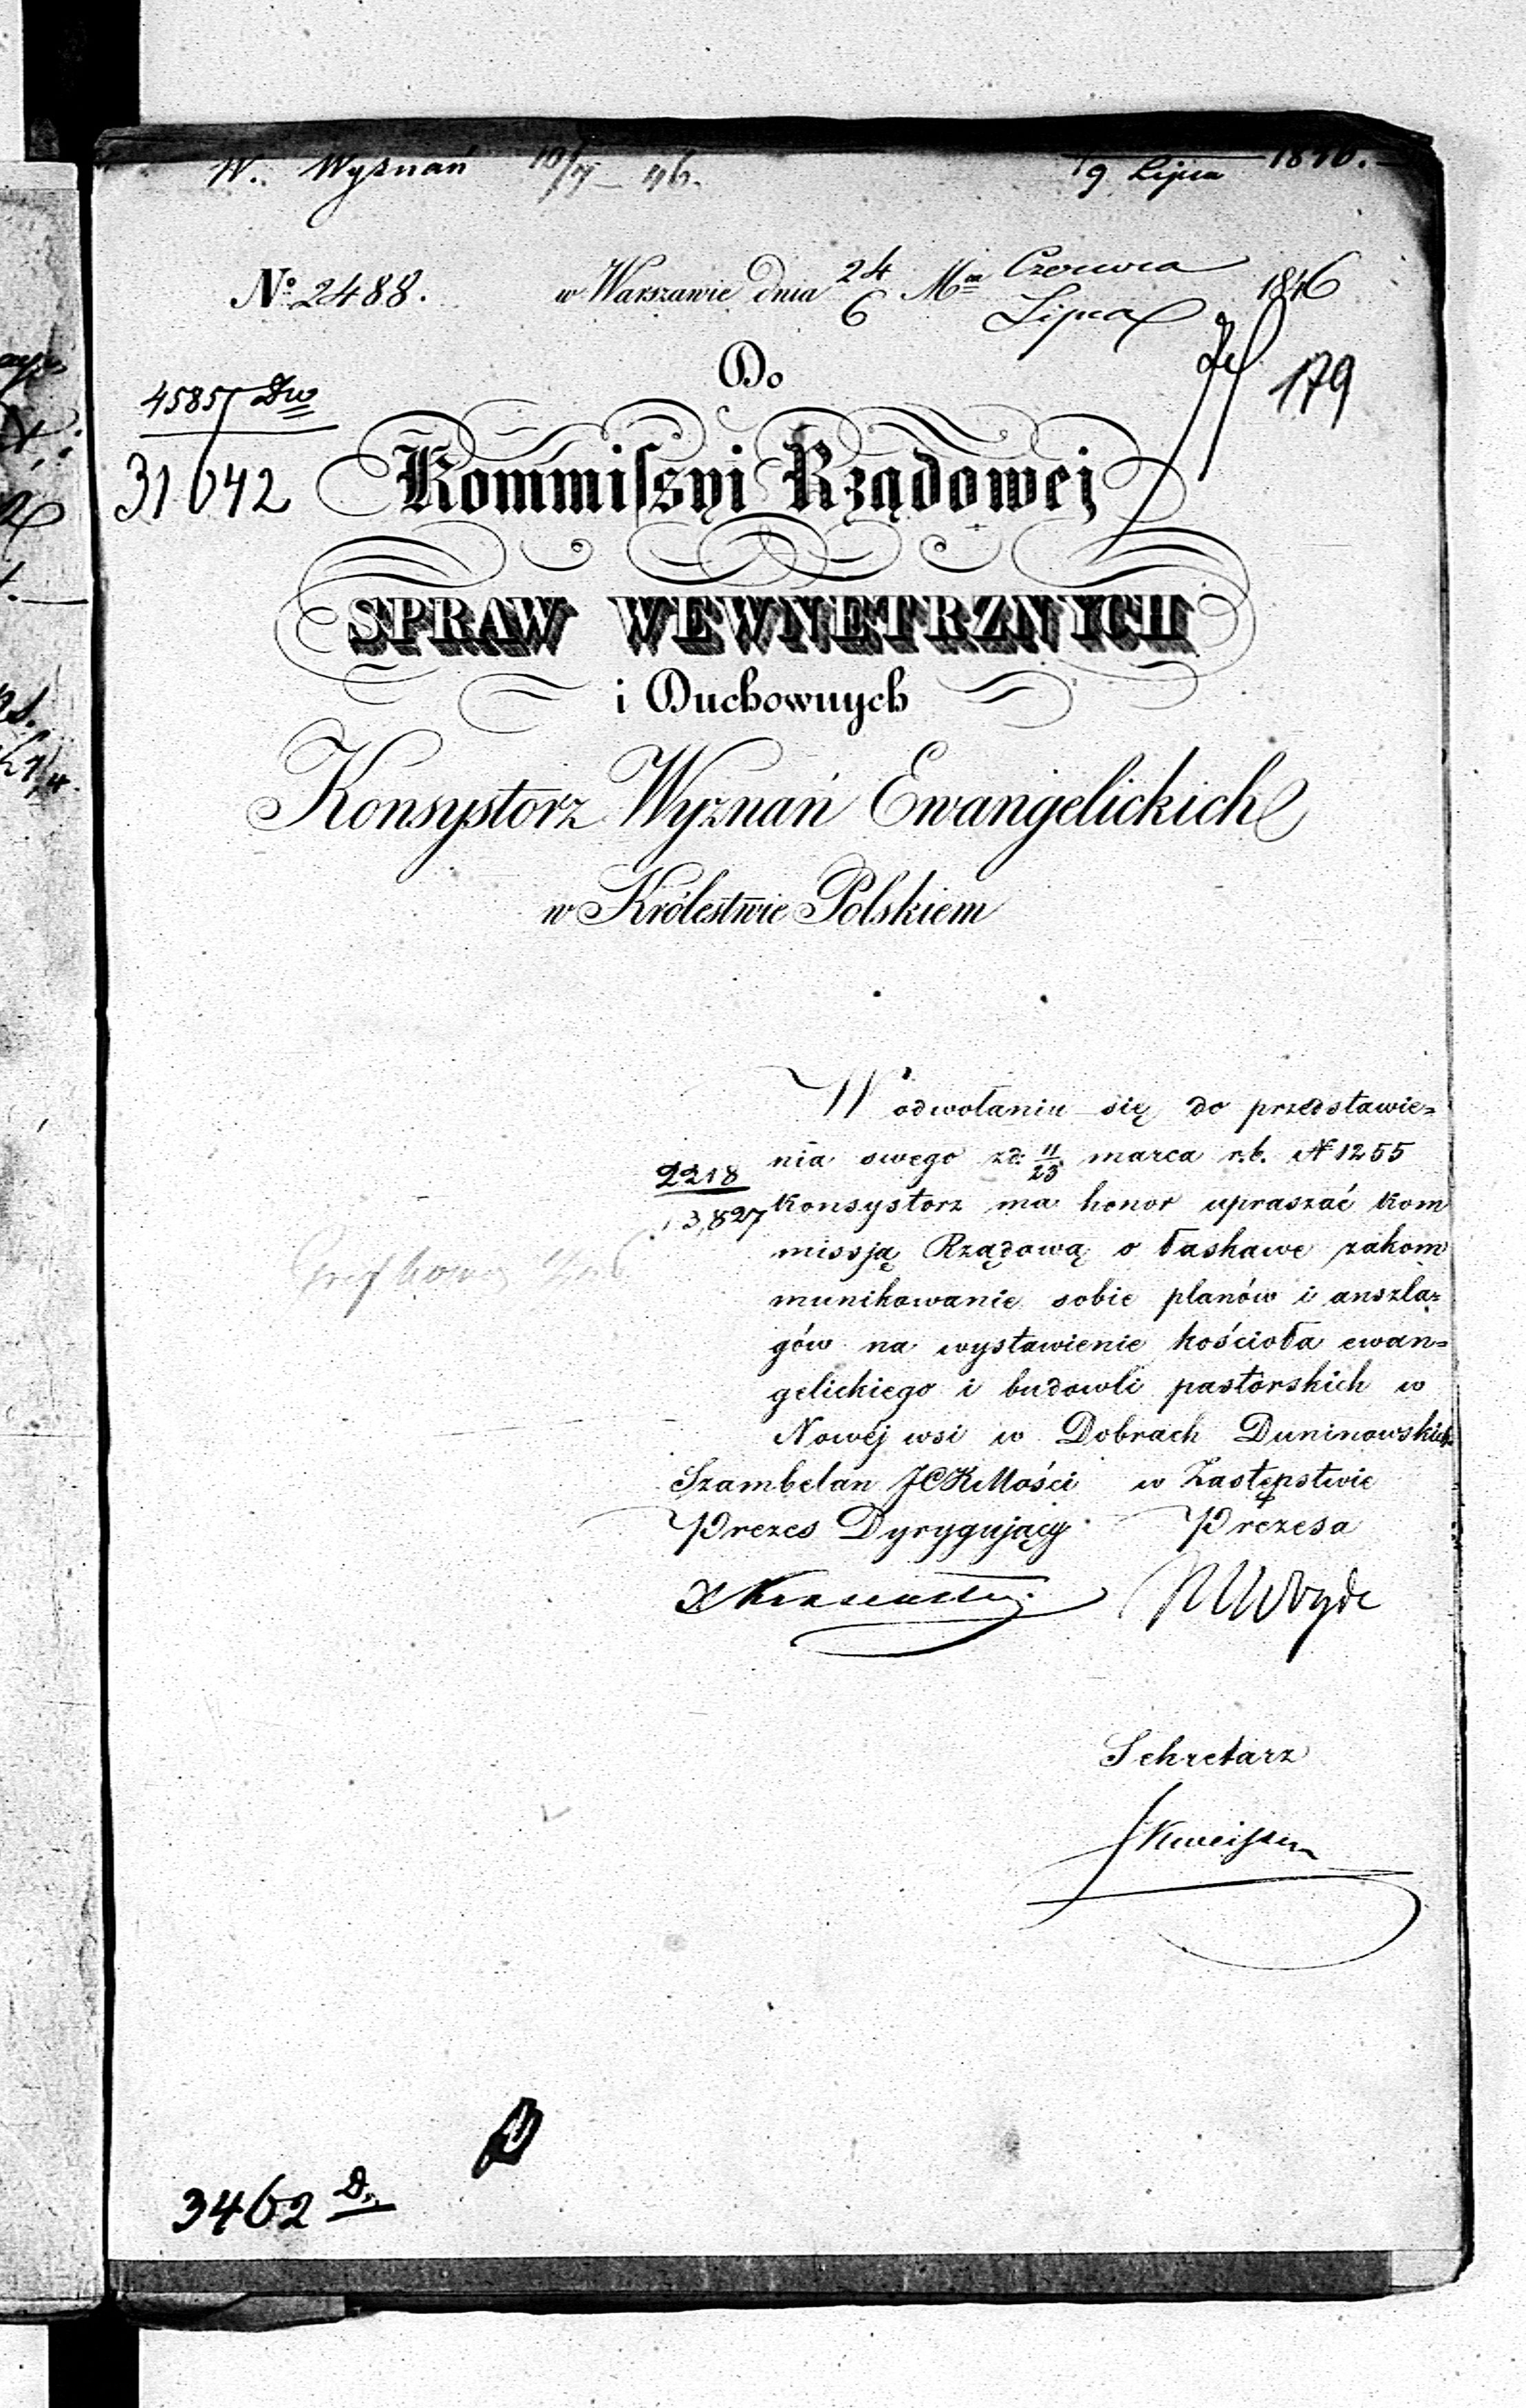 W. Wyznań 10/7 – 46.
9 Lipca 1846.
№ 2488.
w Warszawie dnia 24/6 Mca Czerwca/Lipca 1846
179
Do
45857 Dw
31642
Kommissyi Rządowej
SPRAW WEWNĘTRZNYCH
i Duchownych
Konsystorz Wyznań Ewangelickich
w Królestwie Polskiem
W odwołaniu się do przedstawie=
nia swego zd: 11/23 marca r.b. № 1255
2218
13,827
Konsystorz ma honor upraszać Kom
missją Rządową o łaskawe zakom
munikowanie sobie planów i anszla=
gów na wystawienie kościoła ewan=
gelickiego i budowli pastorskich w
Nowej wsi w Dobrach Duninowskich
Szambelan JCKMości w Zastępstwie
Prezes Dyrygujący Prezesa
Sekretarz
3462 D.